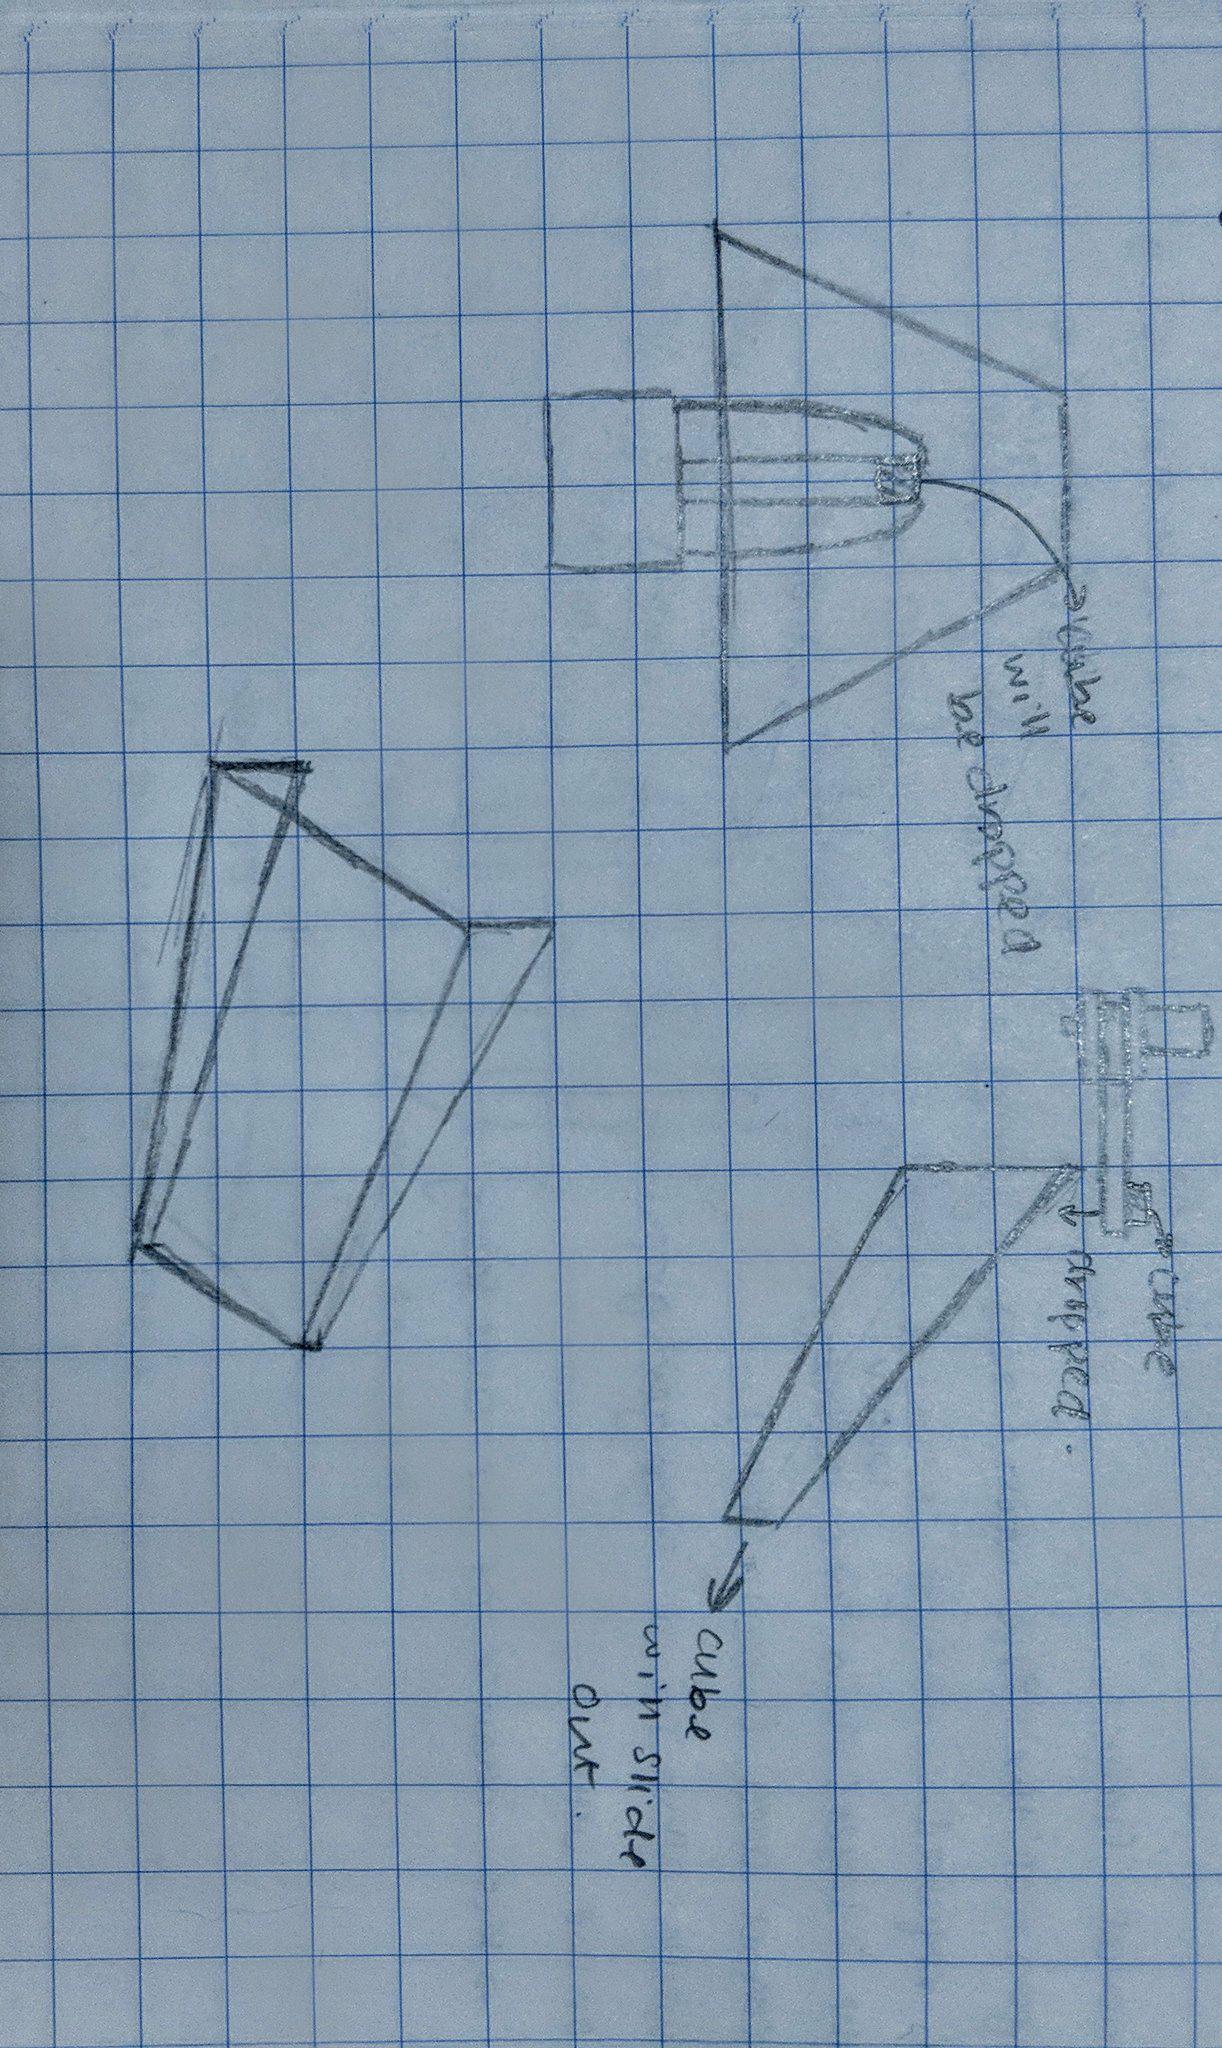 cube
will
be dropped
cube
dropped.
cube
will slide
out.